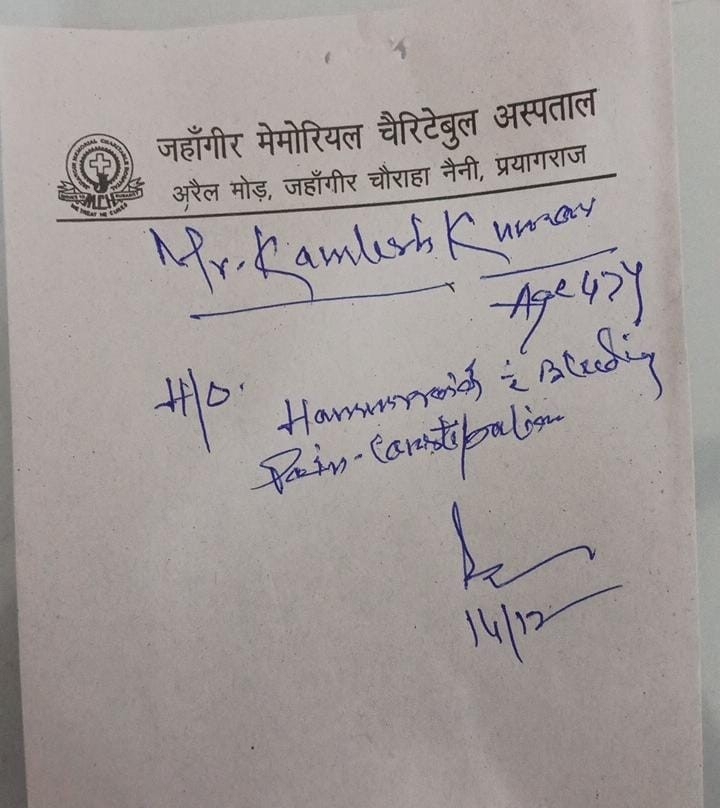 जहाँगीर मेमोरियल चैरिटेबुल अस्पताल
अरैल मोड़, जहाँगीर चौराहा नैनी, प्रयागराज
Mr. Kamlesh Kumar
Age 47y
H/O. Bleeding
Pain - Constipation
14/12